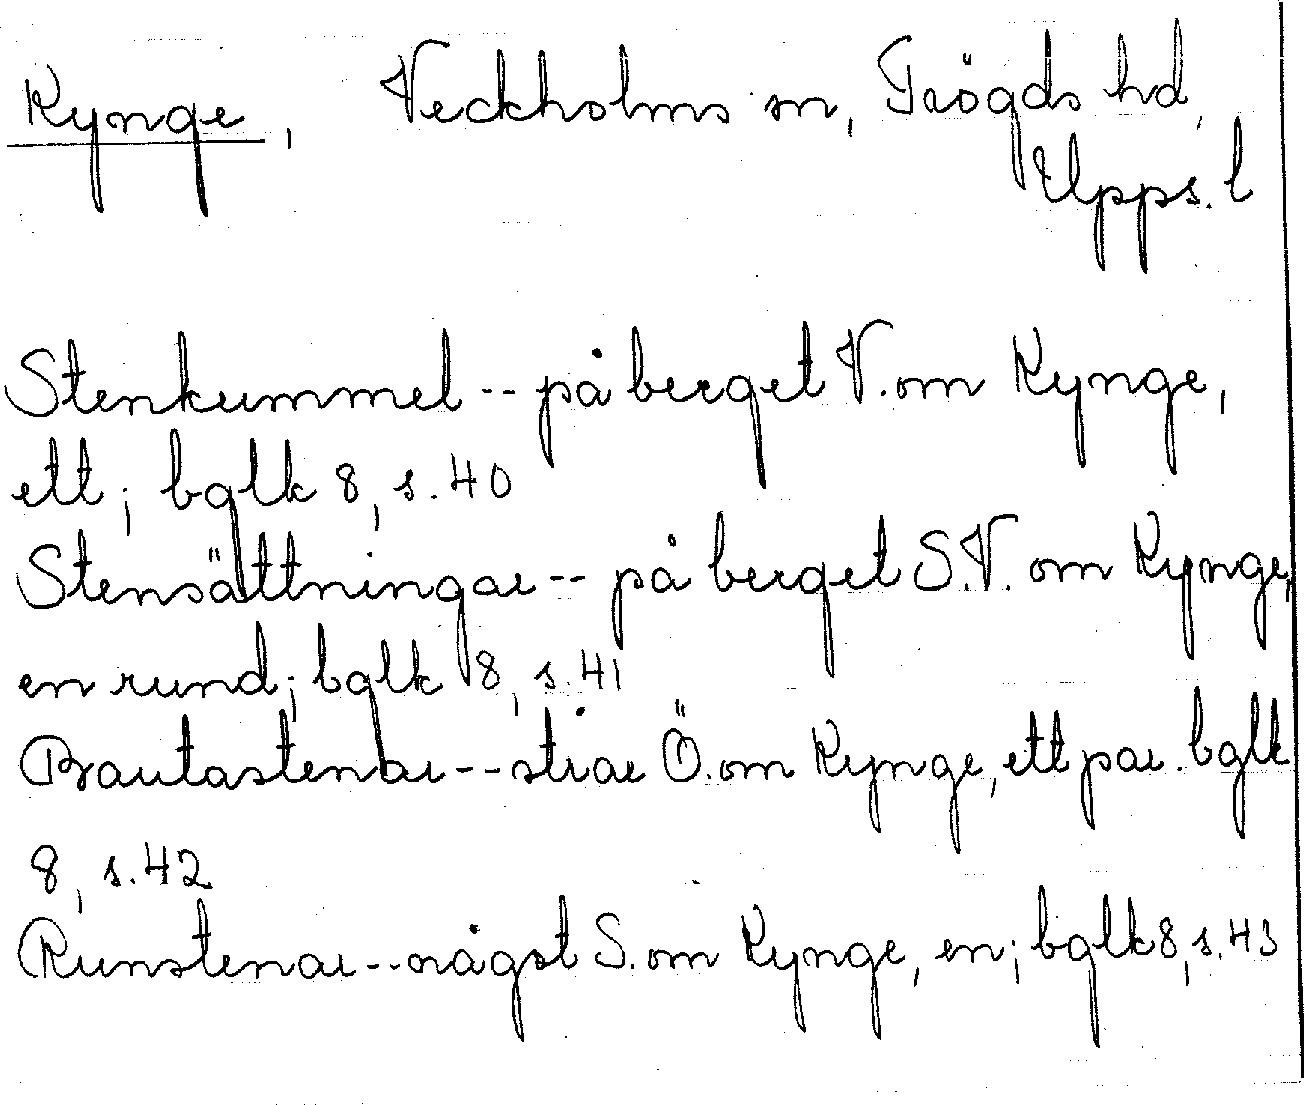 Kynge, Veckholms sn, Trögds hd,
Upps. l
Stenkummel -- på berget V. om Kynge,
ett; bglk 8, s. 40
Stensättningar -- på berget S.V. om Kynge,
en rund; bglk 8, s. 41
Bautastenar -- strax Ö. om Kynge, ett par. bglk
8, s. 42
Runstenar -- något S. om Kynge, en; bglk 8, s. 43